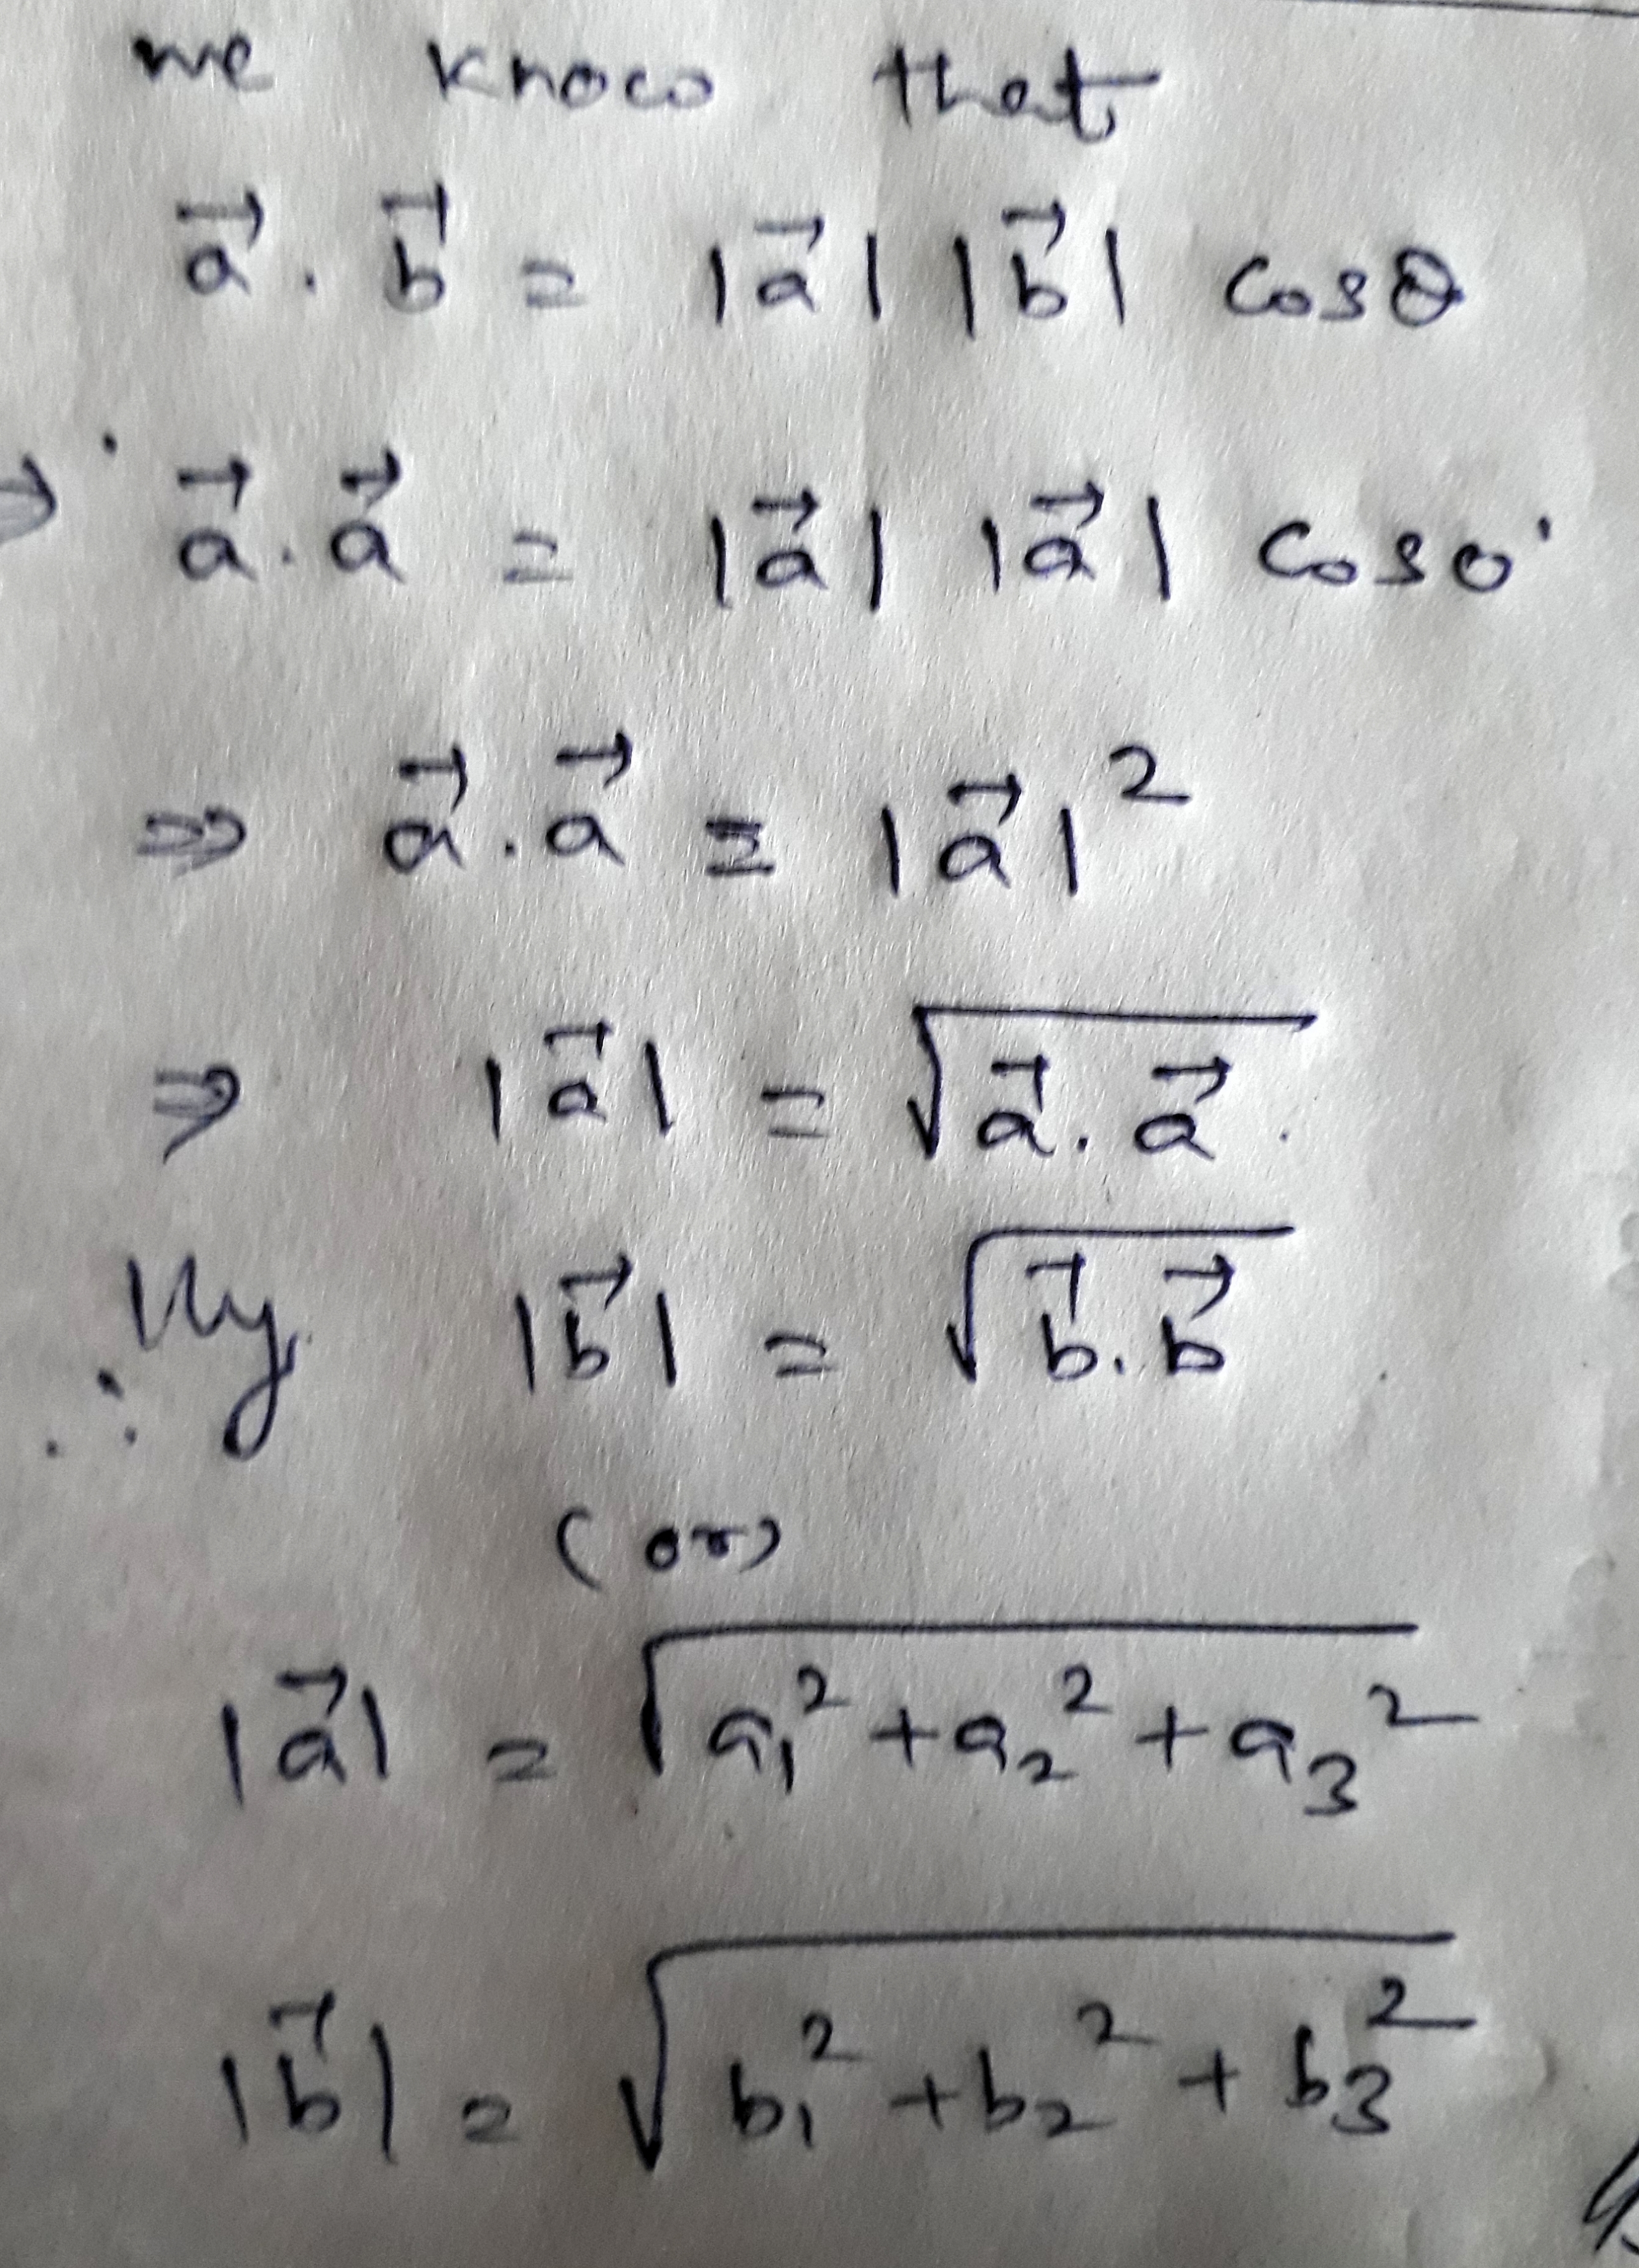 we know that
a⃗ . b⃗ = |a⃗| |b⃗| cosθ
⇒ a⃗ . a⃗ = |a⃗| |a⃗| cos0°
⇒ a⃗ . a⃗ = |a⃗|²
⇒ |a⃗| = √(a⃗ . a⃗)
∴ llly |b⃗| = √(b⃗ . b⃗)
(or)
|a⃗| = √(a₁² + a₂² + a₃²)
|b⃗| = √(b₁² + b₂² + b₃²)